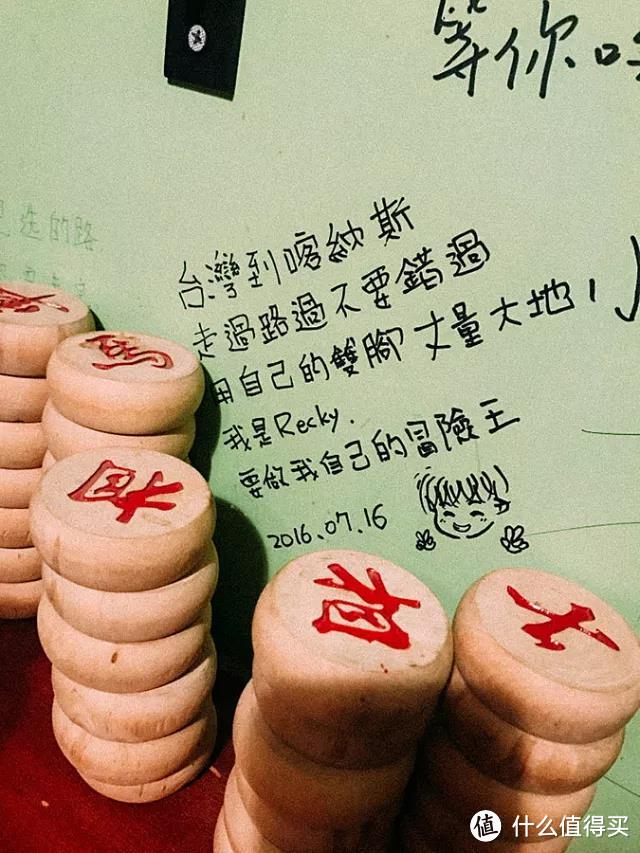 等你
选的路
台灣到喀納斯
走過路過不要錯過
用自己的雙腳丈量大地,
我是Recky.
要做我自己的冒險王
2016.07.16
相
相
士
值 什么值得买